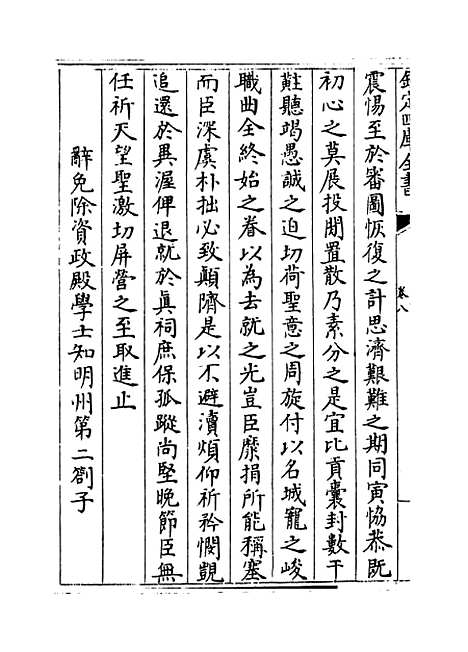 欽定四庫全書
卷八
震惕至於審圖恢復之計思濟艱難之期同寅恊恭既
初心之莫展投閒置散乃素分之是宜比貢囊封數干
黈聽竭愚誠之迫切荷聖意之周旋付以名城寵之峻
職曲全終始之眷以為去就之光豈臣糜捐所能稱塞
而臣深虞朴拙必致顛隮是以不避瀆煩仰祈矜憫覬
追還於異渥俾退就於真祠庶保孤蹤尚堅晚節臣無
任祈天望聖激切屏營之至取進止
辭免除資政殿學士知明州第二劄子